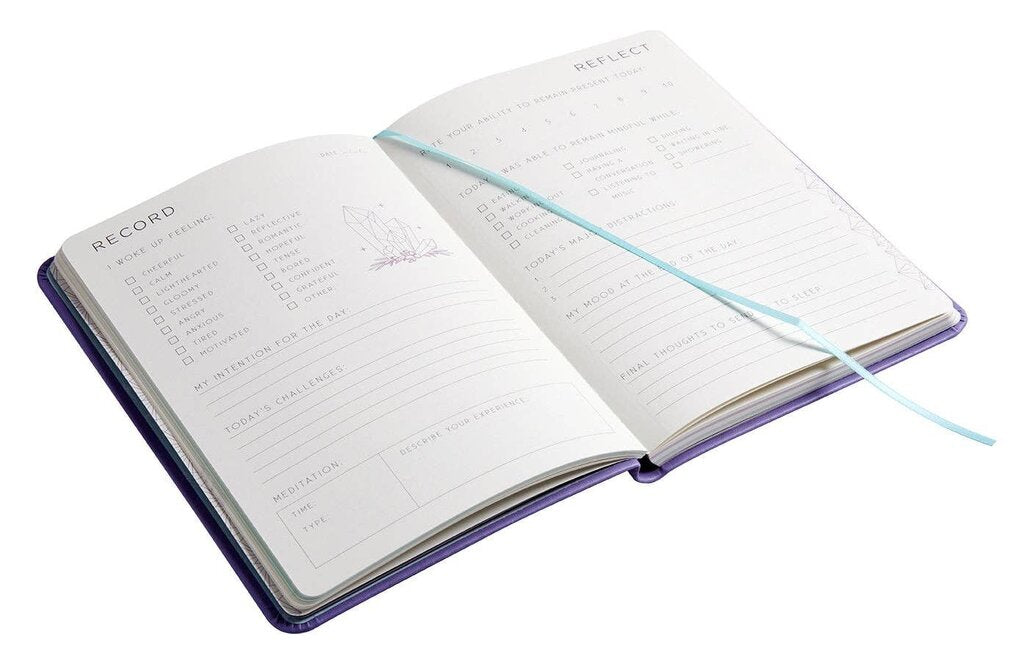 DATE
RECORD
I WOKE UP FEELING:
CHEERFUL
CALM
LIGHTHEARTED
GLOOMY
STRESSED
ANGRY
ANXIOUS
TIRED
MOTIVATED
LAZY
REFLECTIVE
ROMANTIC
HOPEFUL
TENSE
BORED
CONFIDENT
GRATEFUL
OTHER:
MY INTENTION FOR THE DAY:
TODAY'S CHALLENGES:
MEDITATION:
TIME:
TYPE:
DESCRIBE YOUR EXPERIENCE:
REFLECT
YOUR ABILITY TO REMAIN PRESENT TODAY:
1 2 3 4 5 6 7 8 9 10
TODAY WAS ABLE TO REMAIN MINDFUL WHILE:
EATING
COOKING
CLEANING
JOURNALING
HAVING A
CONVERSATION
LISTENING TO
MUSIC
DRIVING
WAITING IN LINE
SHOWERING
TODAY'S MAJOR DISTRACTIONS:
1.
2.
3.
MY MOOD AT THE END OF THE DAY:
FINAL THOUGHTS TO SEND TO SLEEP: